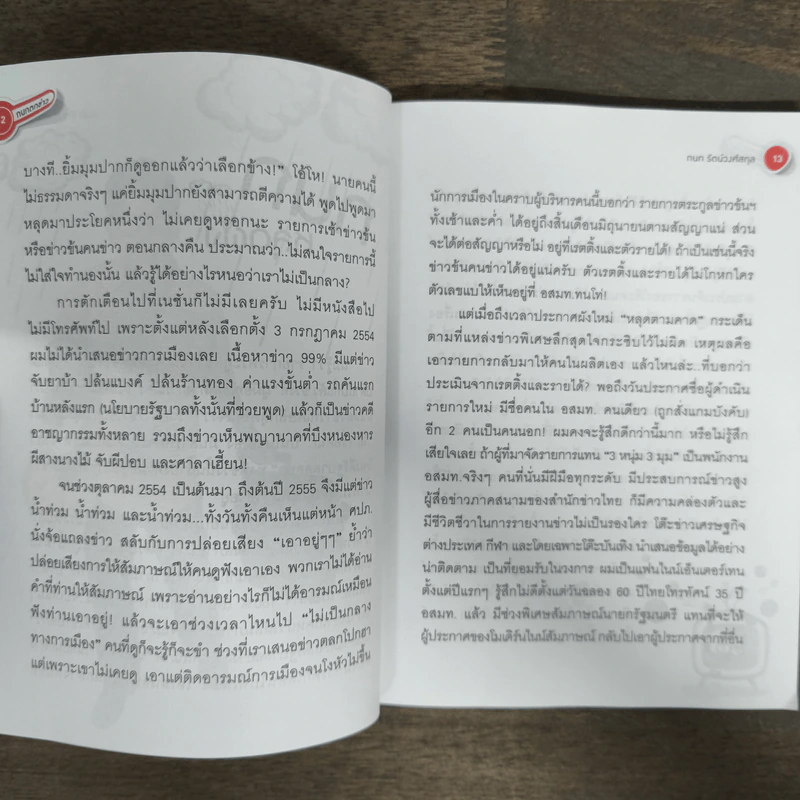 2 กนกตกข่าว
บางที..ยิ้มมุมปากก็ดูออกแล้วว่าเลือกข้าง!” โอ้โห! นายคนนี้
ไม่ธรรมดาจริงๆ แค่ยิ้มมุมปากยังสามารถตีความได้ พูดไปพูดมา
หลุดมาประโยคหนึ่งว่า ไม่เคยดูหรอกนะ รายการเช้าข่าวข้น
หรือข่าวข้นคนข่าว ตอนกลางคืน ประมาณว่า..ไม่สนใจรายการนี้
ไม่ใส่ใจทำนองนั้น แล้วรู้ได้อย่างไรหนอว่าเราไม่เป็นกลาง?
การตักเตือนไปที่เนชั่นก็ไม่มีเลยครับ ไม่มีหนังสือไป
ไม่มีโทรศัพท์ไป เพราะตั้งแต่หลังเลือกตั้ง 3 กรกฎาคม 2554
ผมไม่ได้นำเสนอข่าวการเมืองเลย เนื้อหาข่าว 99% มีแต่ข่าว
จับยาบ้า ปล้นแบงค์ ปล้นร้านทอง ค่าแรงขั้นต่ำ รถคันแรก
บ้านหลังแรก (นโยบายรัฐบาลทั้งนั้นที่ช่วยพูด) แล้วก็เป็นข่าวคดี
อาชญากรรมทั้งหลาย รวมถึงข่าวเห็นพญานาคที่บึงหนองหาร
ผีสางนางไม้ จับผีปอบ และศาลาเฮี้ยน!
จนช่วงตุลาคม 2554 เป็นต้นมา ถึงต้นปี 2555 จึงมีแต่ข่าว
น้ำท่วม น้ำท่วม และน้ำท่วม...ทั้งวันทั้งคืนเห็นแต่หน้า ศปภ.
นั่งจ้อแถลงข่าว สลับกับการปล่อยเสียง “เอาอยู่ๆๆ” ย้ำว่า
ปล่อยเสียงการให้สัมภาษณ์ให้คนดูฟังเอาเอง พวกเราไม่ได้อ่าน
คำที่ท่านให้สัมภาษณ์ เพราะอ่านอย่างไรก็ไม่ได้อารมณ์เหมือน
ฟังท่านเอาอยู่! แล้วจะเอาช่วงเวลาไหนไป “ไม่เป็นกลาง
ทางการเมือง” คนที่ดูก็จะรู้ก็จะขำ ช่วงที่เราเสนอข่าวตลกโปกฮา
แต่เพราะเขาไม่เคยดู เอาแต่ติดอารมณ์การเมืองจนโงหัวไม่ขึ้น
กนก รัตน์วงศ์สกุล 13
นักการเมืองในคราบผู้บริหารคนนี้บอกว่า รายการตระกูลข่าวข้นฯ
ทั้งเช้าและค่ำ ได้อยู่ถึงสิ้นเดือนมิถุนายนตามสัญญาแน่ ส่วน
จะได้ต่อสัญญาหรือไม่ อยู่ที่เรตติ้งและตัวรายได้! ถ้าเป็นเช่นนี้จริง
ข่าวข้นคนข่าวได้อยู่แน่ครับ ตัวเรตติ้งและรายได้ไม่โกหกใคร
ตัวเลขแบให้เห็นอยู่ที่ อสมท.ทนโท่!
แต่เมื่อถึงเวลาประกาศผังใหม่ “หลุดตามคาด” กระเด็น
ตามที่แหล่งข่าวพิเศษลึกสุดใจกระซิบไว้ไม่ผิด เหตุผลคือ
เอารายการกลับมาให้คนในผลิตเอง แล้วไหนล่ะ..ที่บอกว่า
ประเมินจากเรตติ้งและรายได้? พอถึงวันประกาศชื่อผู้ดำเนิน
รายการใหม่ มีชื่อคนใน อสมท. คนเดียว (ถูกสั่งแกมบังคับ)
อีก 2 คนเป็นคนนอก! ผมคงจะรู้สึกดีกว่านี้มาก หรือไม่รู้สึก
เสียใจเลย ถ้าผู้ที่มาจัดรายการแทน “3 หนุ่ม 3 มุม” เป็นพนักงาน
อสมท.จริงๆ คนที่นั่นมีฝีมือทุกระดับ มีประสบการณ์ข่าวสูง
ผู้สื่อข่าวภาคสนามของสำนักข่าวไทย ก็มีความคล่องตัวและ
มีชีวิตชีวาในการรายงานข่าวไม่เป็นรองใคร โต๊ะข่าวเศรษฐกิจ
ต่างประเทศ กีฬา และโดยเฉพาะโต๊ะบันเทิง นำเสนอข้อมูลได้อย่าง
น่าติดตาม เป็นที่ยอมรับในวงการ ผมเป็นแฟนไนน์เอ็นเตอร์เทน
ตั้งแต่ปีแรกๆ รู้สึกไม่ดีตั้งแต่วันฉลอง 60 ปีไทยโทรทัศน์ 35 ปี
อสมท. แล้ว มีช่วงพิเศษสัมภาษณ์นายกรัฐมนตรี แทนที่จะให้
ผู้ประกาศของโมเดิร์นไนน์สัมภาษณ์ กลับไปเอาผู้ประกาศจากที่อื่น